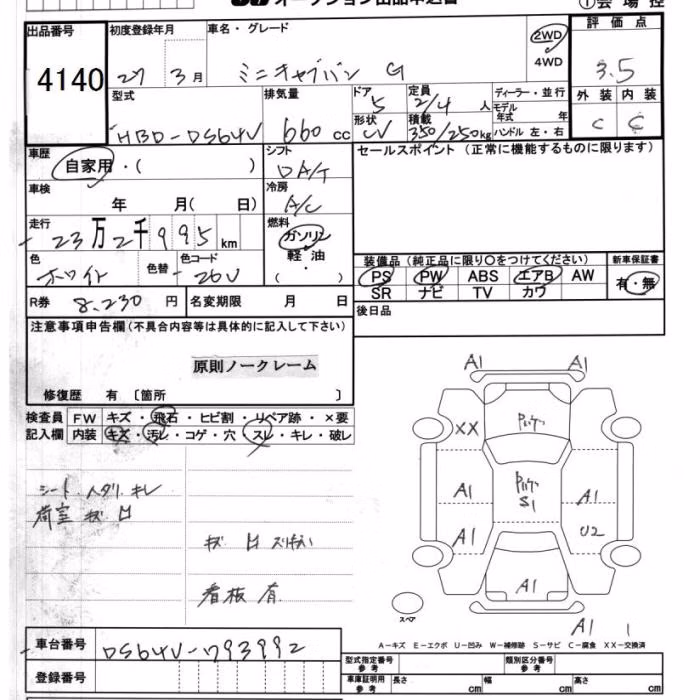 オークション出品申込書
①会場控
出品番号 初度登録年月 車名・グレード 2WD 評価点
4140 27 3月 ミニキャブバン G 4WD 3.5
型式 排気量 ドア 5 定員 2/4 人 ディーラー・並行 外装 内装
HBD-DS64V 660 cc 形状 CV 積載 350/250kg モデル年式 年 ハンドル 左・右 C C
車歴 自家用・( ) シフト DA/T セールスポイント(正常に機能するものに限ります)
車検 年 月( 日) 冷房 A/C
走行 23万2千995km 燃料 ガソリン
軽油
( )
色 ホワイト 色替 色コード 26U
装備品(純正品に限り〇をつけてください) 新車保証書
PS PW ABS エアB AW 有・無
SR ナビ TV カワ
R券 8,230 円 名変期限 月 日 後日品
注意事項申告欄(不具合内容等は具体的に記入して下さい)
原則ノークレーム
修復歴 有〔箇所 〕
検査員 FW キズ・飛石・ヒビ割・リペア跡・×要
記入欄 内装 キズ・汚レ・コゲ・穴・スレ・キレ・破レ
シート
荷室 キズ 凹
キズ 凹
看板 有
A1 A1
XX
A1 S1 A1
A1 U2
A1
スペア
A1 1
A-キズ E-エクボ U-凹み W-補修跡 S-サビ C-腐食 XX-交換済
車台番号 DS64V-793992
登録番号
型式指定番号参考 類別区分番号参考
車庫証明用参考 長さ cm 幅 cm 高さ cm